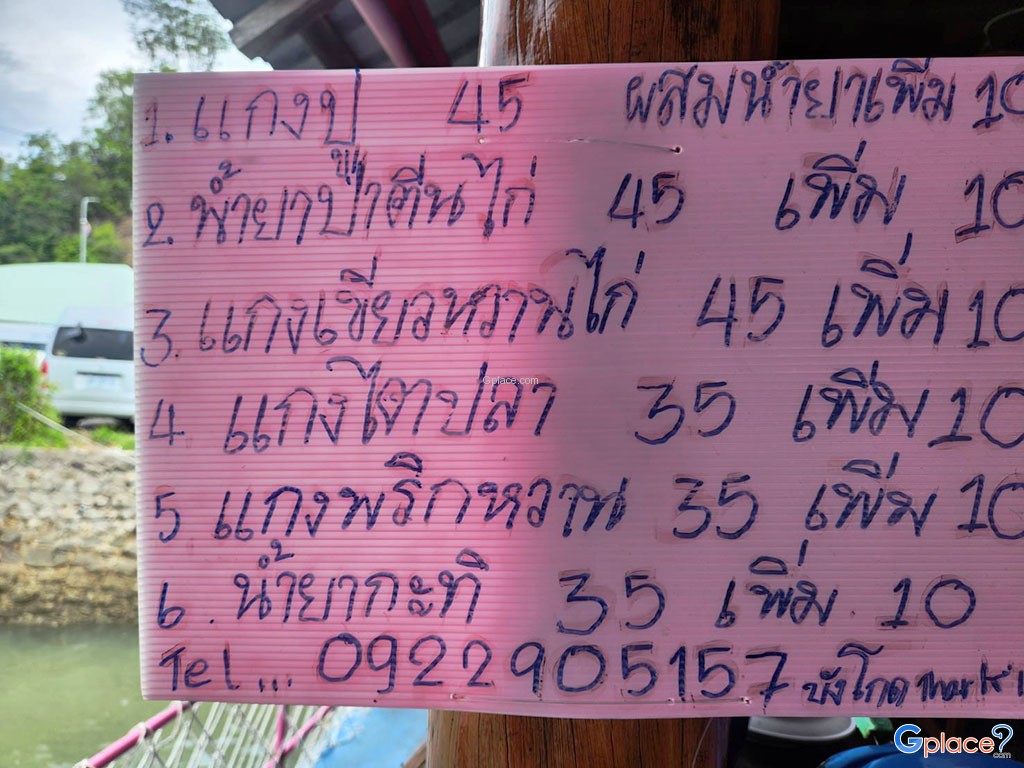 1. แกงปู 45 ผสมน้ำยาเพิ่ม 10
2. น้ำยาป่าตีนไก่ 45 เพิ่ม 10
3. แกงเขียวหวานไก่ 45 เพิ่ม 10
4. แกงไตปลา 35 เพิ่ม 10
5. แกงพริกหวาน 35 เพิ่ม 10
6. น้ำยากะทิ 35 เพิ่ม 10
Tel... 0922905157 บังโกด
Gplace.com
Gplace.com